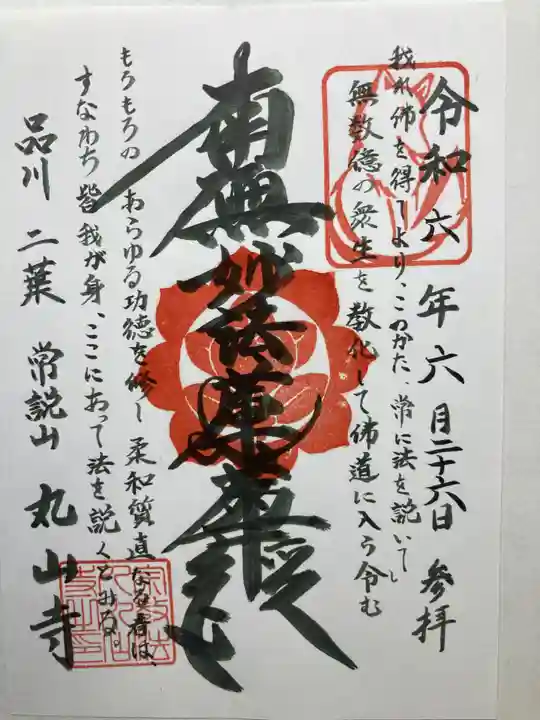 令和六年六月二十六日 参拝
我れ佛を得てより、このかた、常に法を説いて
無数億の衆生を教化して佛道に入ら令む
南無妙法蓮華経
もろもろの あらゆる功徳を修し柔和質直なる者は、
すなわち皆我が身、ここにあって法を説くとみる。
品川 二葉 常説山 丸山寺